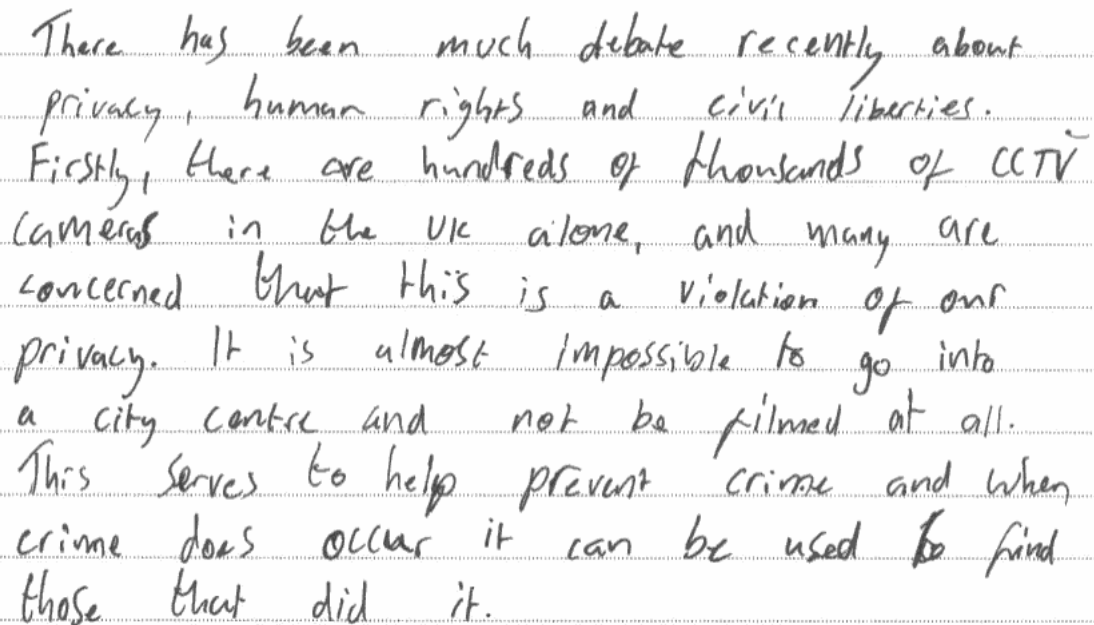 There has been much debate recently about
privacy, human rights and civil liberties.
Firstly, there are hundreds of thousands of CCTV
cameras in the UK alone, and many are
concerned that this is a violation of our
privacy. It is almost impossible to go into
a city centre and not be filmed at all.
This serves to help prevent crime and when
crime does occur it can be used to find
those that did it.